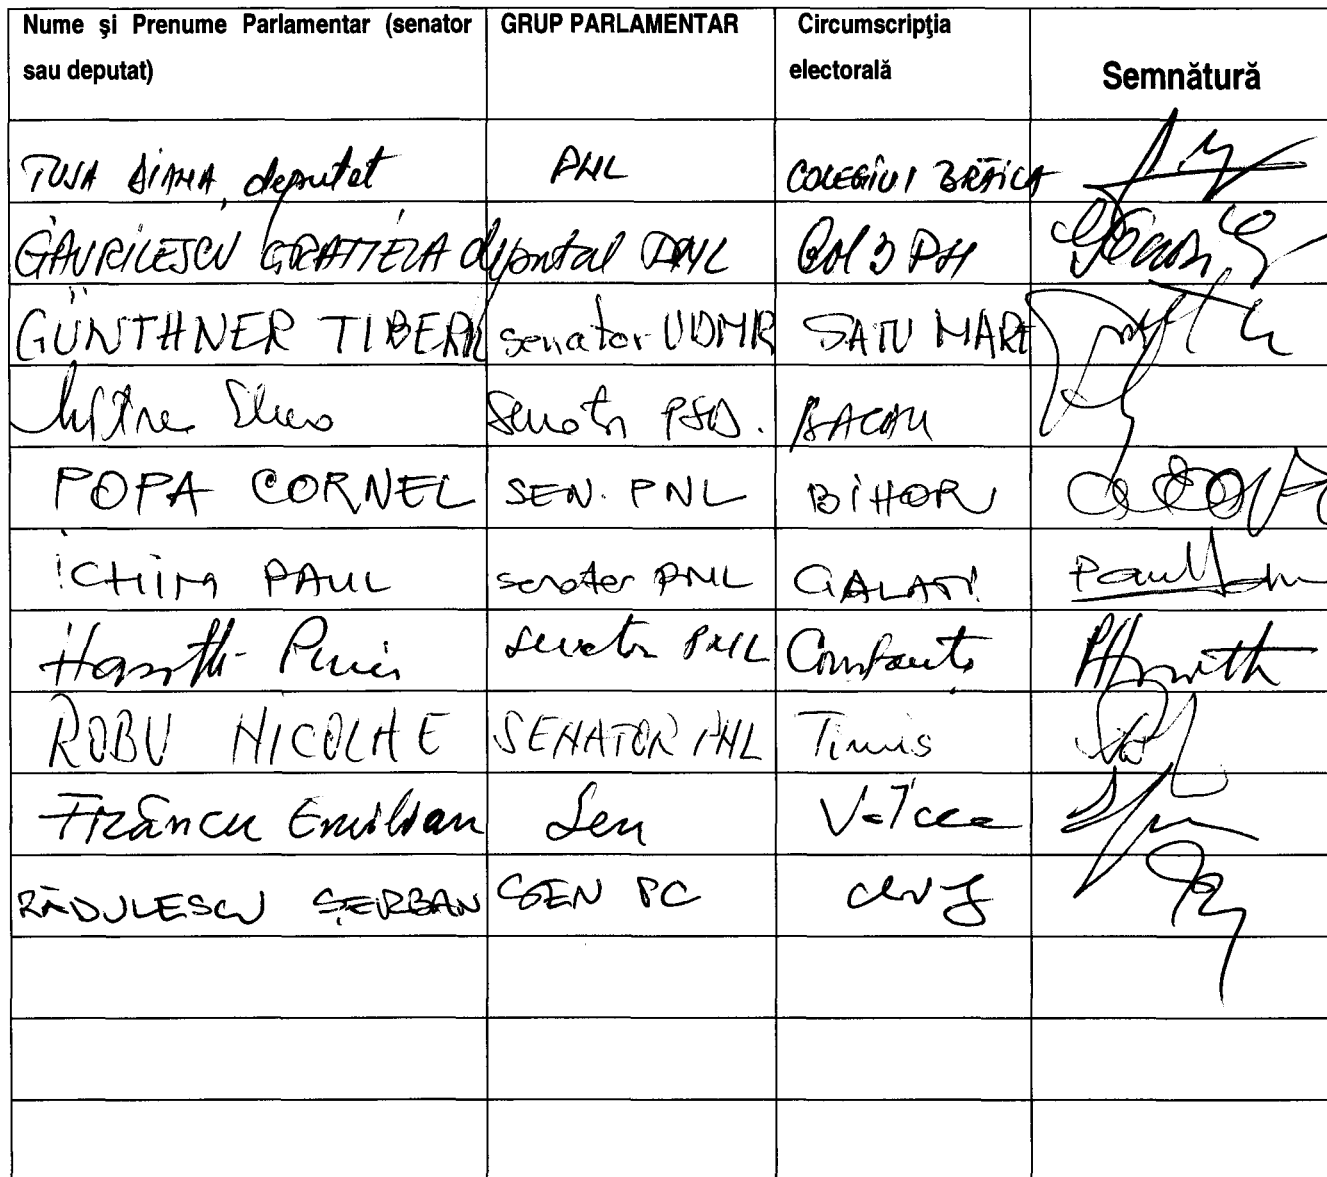 Nume şi Prenume Parlamentar (senator sau deputat) GRUP PARLAMENTAR Circumscripţia electorală Semnătură
TUSA DIANA, deputat PNL COLEGIUL BRĂILA
GAVRILESCU GRAȚIELA deputat PNL Col 3 PH
GÜNTHNER TIBERIU senator UDMR SATU MARE
Senator PSD. BACAU
POPA CORNEL SEN. PNL BIHOR
ICHIM PAUL senator PNL GALATI Paul Ichim
Hașotti Puiu senator PNL Constanța
ROBU NICOLAE SENATOR PNL Timis
Frâncu Emilian Sen Valcea
RĂDULESCU ȘERBAN SEN PC CLUJ